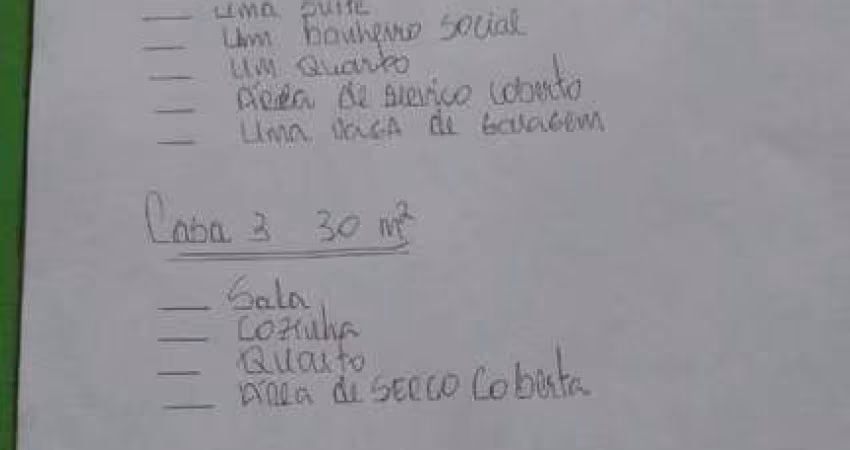 Uma suite
Um banheiro social
Um quarto
Área de serviço coberto
Uma vaga de garagem
Casa 3 30 m²
Sala
Cozinha
Quarto
Área de serço coberta